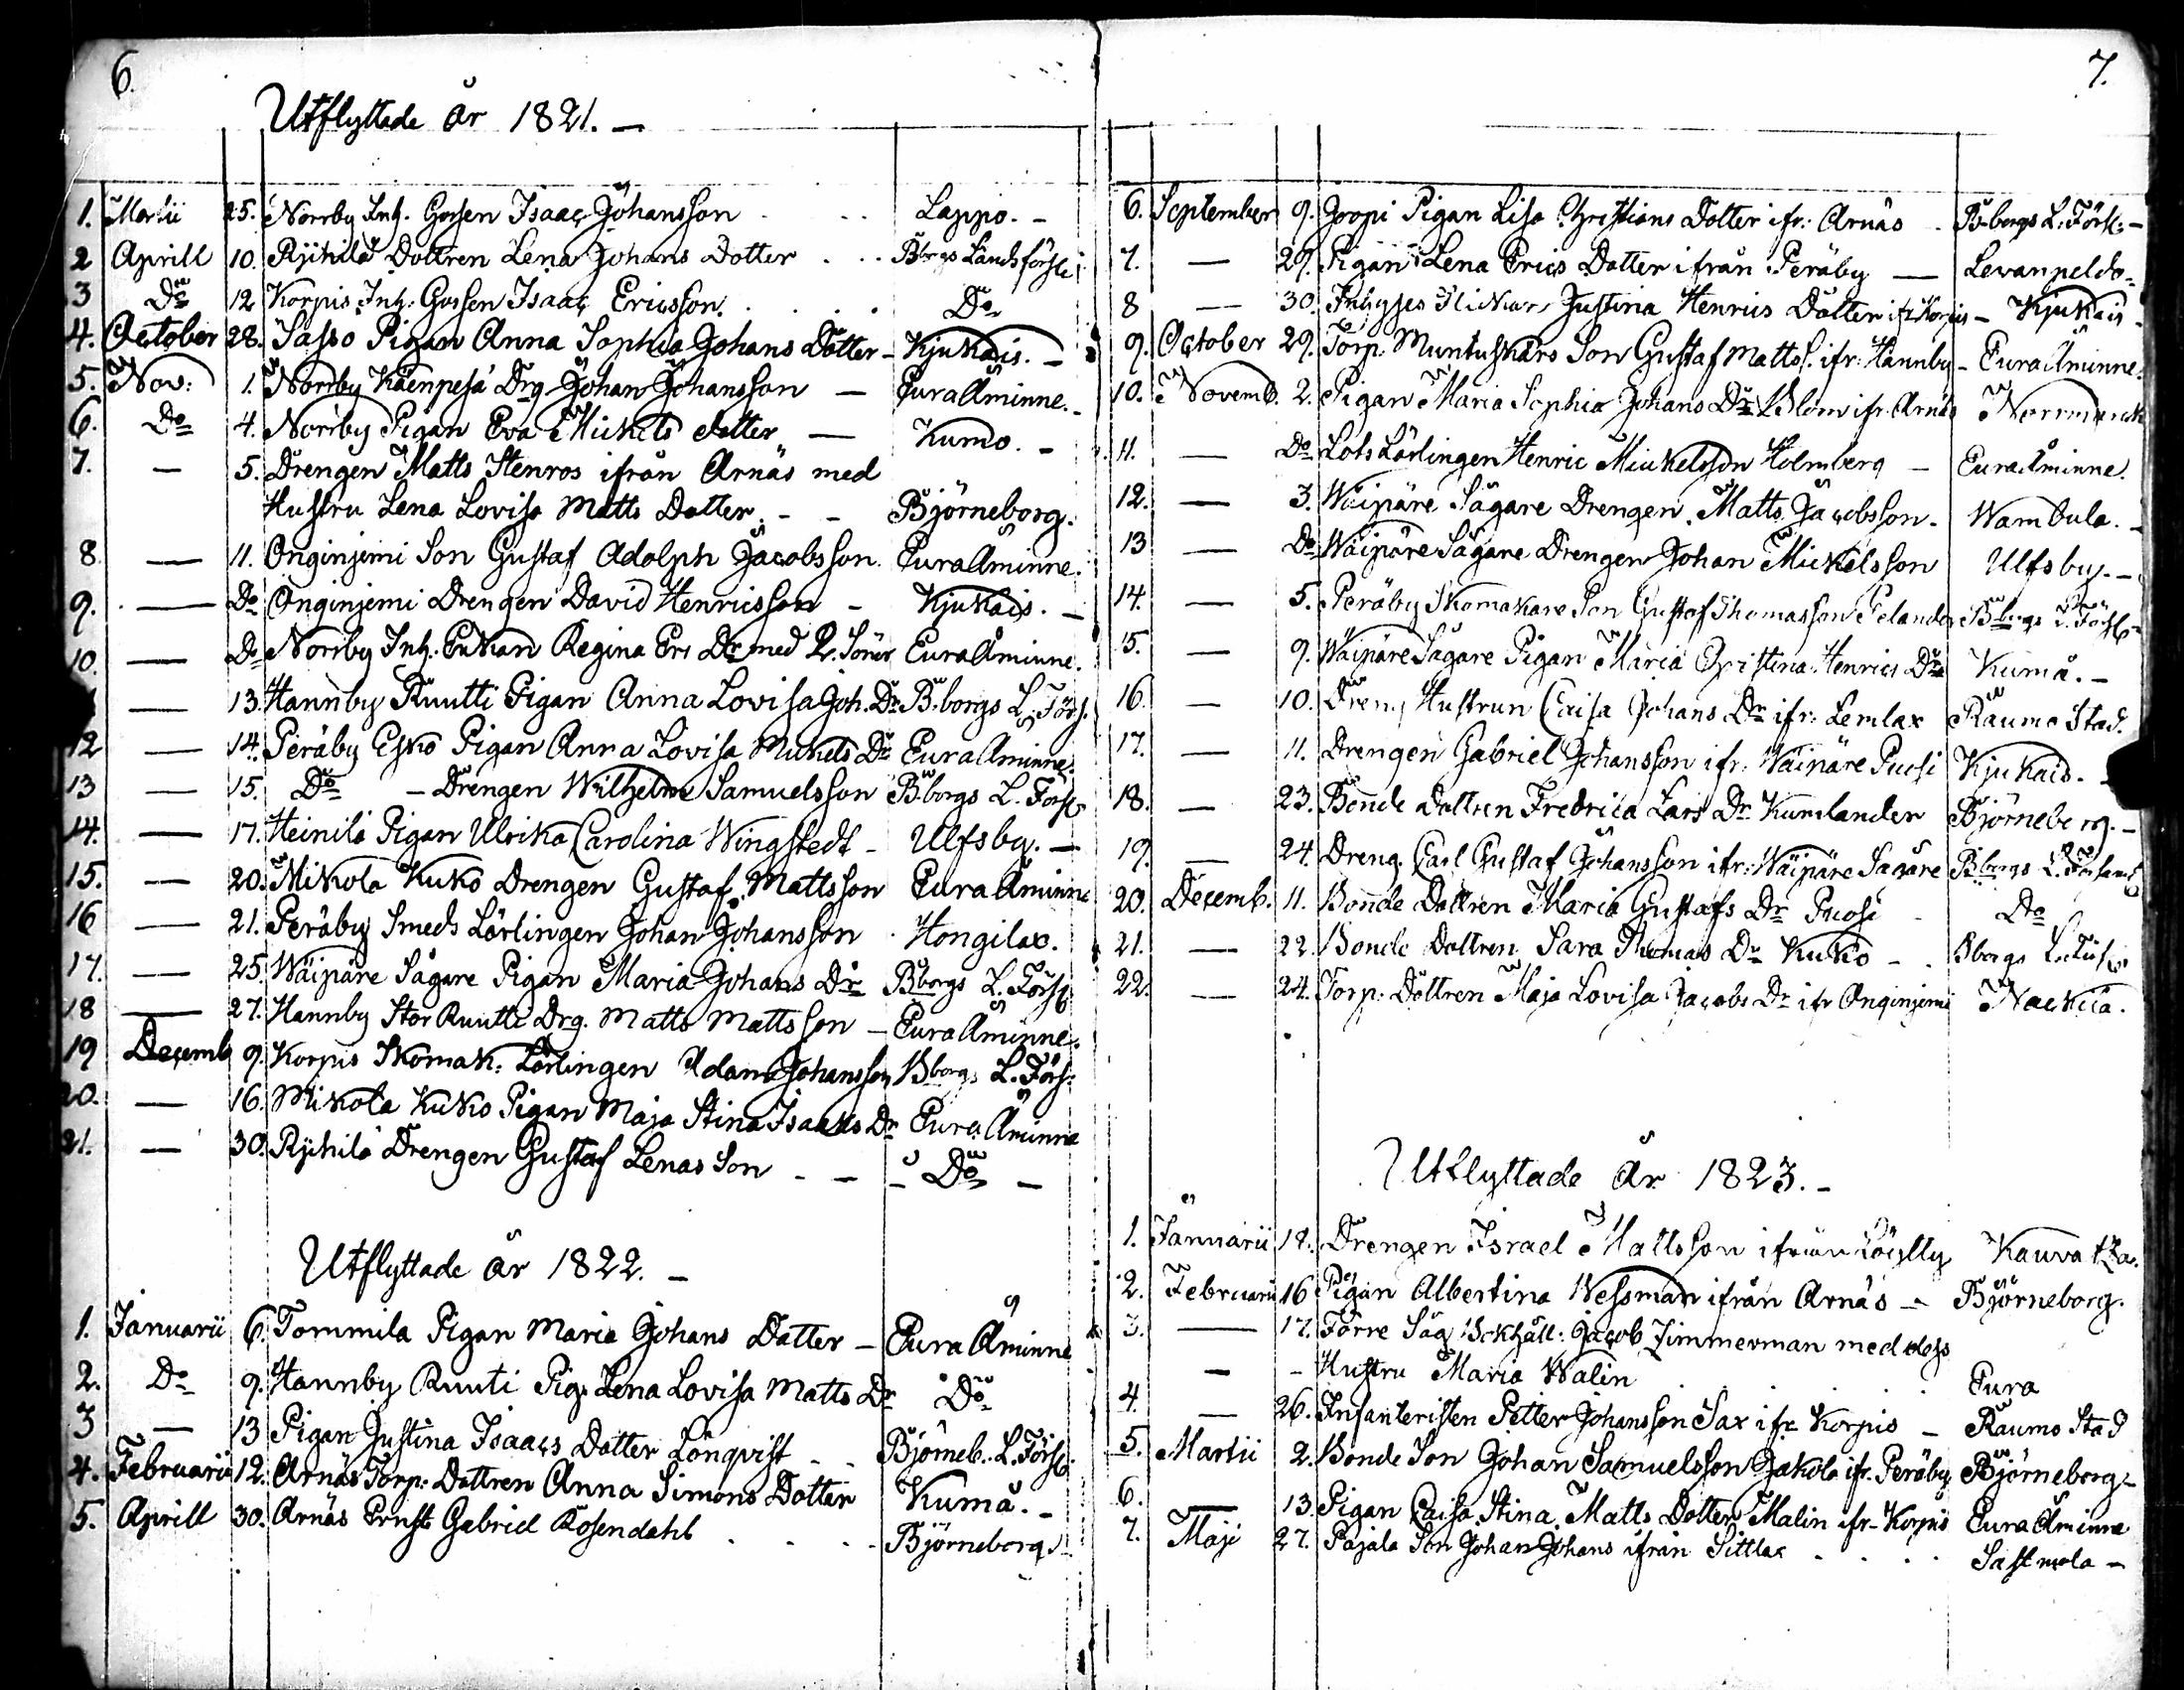 6.
Utflyttade år 1821. –
1. Martii 25. Norrby Inh. Gossen Isaac Johansson . . . Lappo. –
2 Aprill 10. Ryihilä Dottren Lena Johans Dotter . . . Bborgs Landsförsl:
3 Do 12 Korpis Inh: Gossen Isaac Ericsson. . . . Do
4. October 28. Sasso Pigan Anna Sophia Johans Dotter – Kjukais. –
5. Nov: 1. Norrby Käenpesä Drg Johan Johansson – Eura Åminne. –
6. Do 4. Norrby Pigan Eva Mickels Dotter – Kumo. –
7. – 5. Drengen Matts Stenros ifrån Arnäs med
Hustru Lena Lovisa Matts Dotter. – – Björneborg.
8. – 11. Onginjemi Son Gustaf Adolph Jacobsson. Eura Åminne.
9. – Do Onginjemi Drengen David Henricsson – Kjukais. –
10. – Do Norrby Inh. Enkan Regina Ers Dr med 2. Söner Eura Åminne.
– 13. Hannby Ruutti Pigan Anna Lovisa Joh. Dr B:borgs L. Förs.
12 – 14. Peräby Esko Pigan Anna Lovisa Mickels Dr Eura Åminne.
13 – 15. Do – Drengen Wilhelm Samuelsson B:borgs L. Förs
14. – 17. Heinilä Pigan Ulrika Carolina Wingstedt – Ulfsby. –
15. – 20. Mikola Kuko Drengen Gustaf Mattsson Eura Åminne
16 – 21. Peräby Smeds Lärlingen Johan Johansson . Hongilax.
17. – 25. Wäipäre Sågare Pigan Maria Johans Dr Bborgs L. Förs
18 – 27. Hannby Stor Ruutti Drg. Matts Mattsson – Eura Åminne.
19 Decemb 9. Korpis Skomak: Lärlingen Adam Johansson Bborgs L. Förs:
20. – 16. Mikola Kuko Pigan Maja Stina Isaaks Dr Eura Åminne
21. – 30. Ryihilä Drengen Gustaf Lenas Son – – – Do –
Utflyttade år 1822. –
1. Januarii 6. Tommila Pigan Maria Johans Dotter – Eura Åminne
2. Do 9. Hannby Ruuti Pig. Lena Lovisa Matts Dr Do
3 – 13 Pigan Justina Isaacs Dotter Lönqvist – – Björneb. L. Förs.
4. Februarii 12. Arnäs Torp: Dottren Anna Simons Dotter Kumå. –
5. Aprill 30. Arnäs Ernst Gabriel Rosendahl . . . . Björneborg
7.
6. September 9. Joopi Pigan Lisa Christians Dotter ifr: Arnäs . B:borgs L. Förs. –
7. – 29. Pigan Lena Erics Dotter ifrån Peräby – Levanpeldo
8 – 30. Inhyses Flickan Justina Henrics Dotter ifr Korpis – Kjukais
9. October 29. Torp: Muntuskärs Son Gustaf Matts S. ifr: Hannby – Eura Åminne.
10. Novemb. 2. Pigan Maria Sophia Johans Dr Blom ifr. Arnäs Norrmarck
11. – Do Lots Lärlingen Henric Mickelsson Holmberg – Eura Åminne.
12. – 3. Wäipäre Sågare Drengen Matts Jacobsson. Wambula. –
13 – Do Wäipäre Sågare Drengen Johan Mickelsson Ulfsby. –
14. – 5. Peräby Skomakare Son Gustaf Thomasson Felander B:borgs L. Förs
15. – 9. Wäipäre Sågare Pigan Maria Christina Henrics Dr Kumå. –
16. – 10. Dreng Hustrun Caisa Johans Dr ifr: Lemlax Raumo Stad.
17. – 11. Drengen Gabriel Johansson ifr: Wäipäre Puosi Kjukais.
18. – 23. Bonde Dottren Fredrica Lars Dr Kumlander Björneborg. –
19. – 24. Dreng. Carl Gustaf Johansson ifr: Wäipäre Sågare B:borgs L. Församl
20. Decemb. 11. Bonde Dottren Maria Gustafs Dr Puosi – Do
21. – 22. Bonde Dottren Sara Thomas Dr Kuko – . Bborgs L. Förs
22. – 24. Torp: Dottren Maja Lovisa Jacobs Dr ifr Onginjemi Nackila.
Utflyttade år 1823. –
1. Januarii 18. Drengen Israel Mattsson ifrån Löylly Kauvatza.
2. Februarii 16 Pigan Albertina Wessman ifrån Arnäs – Björneborg.
3. – 17. Förre Såg Bokhåll: Jacob Zimmerman med dess
– – Hustru Maria Walin . . . . Eura
4. – 26. Infanteristen Petter Johansson Sax ifr Korpis – Raumo Stad
5. Martii 2. Bonde Son Johan Samuelsson Jakola ifr. Peräby Björneborg
6. – 13. Pigan Caisa Stina Matts Dotter Malin ifr Korpis Eura Åminne
7. Maji 27. Pajala Son Johan Johans ifrån Sittlax . . . . Sastmola –